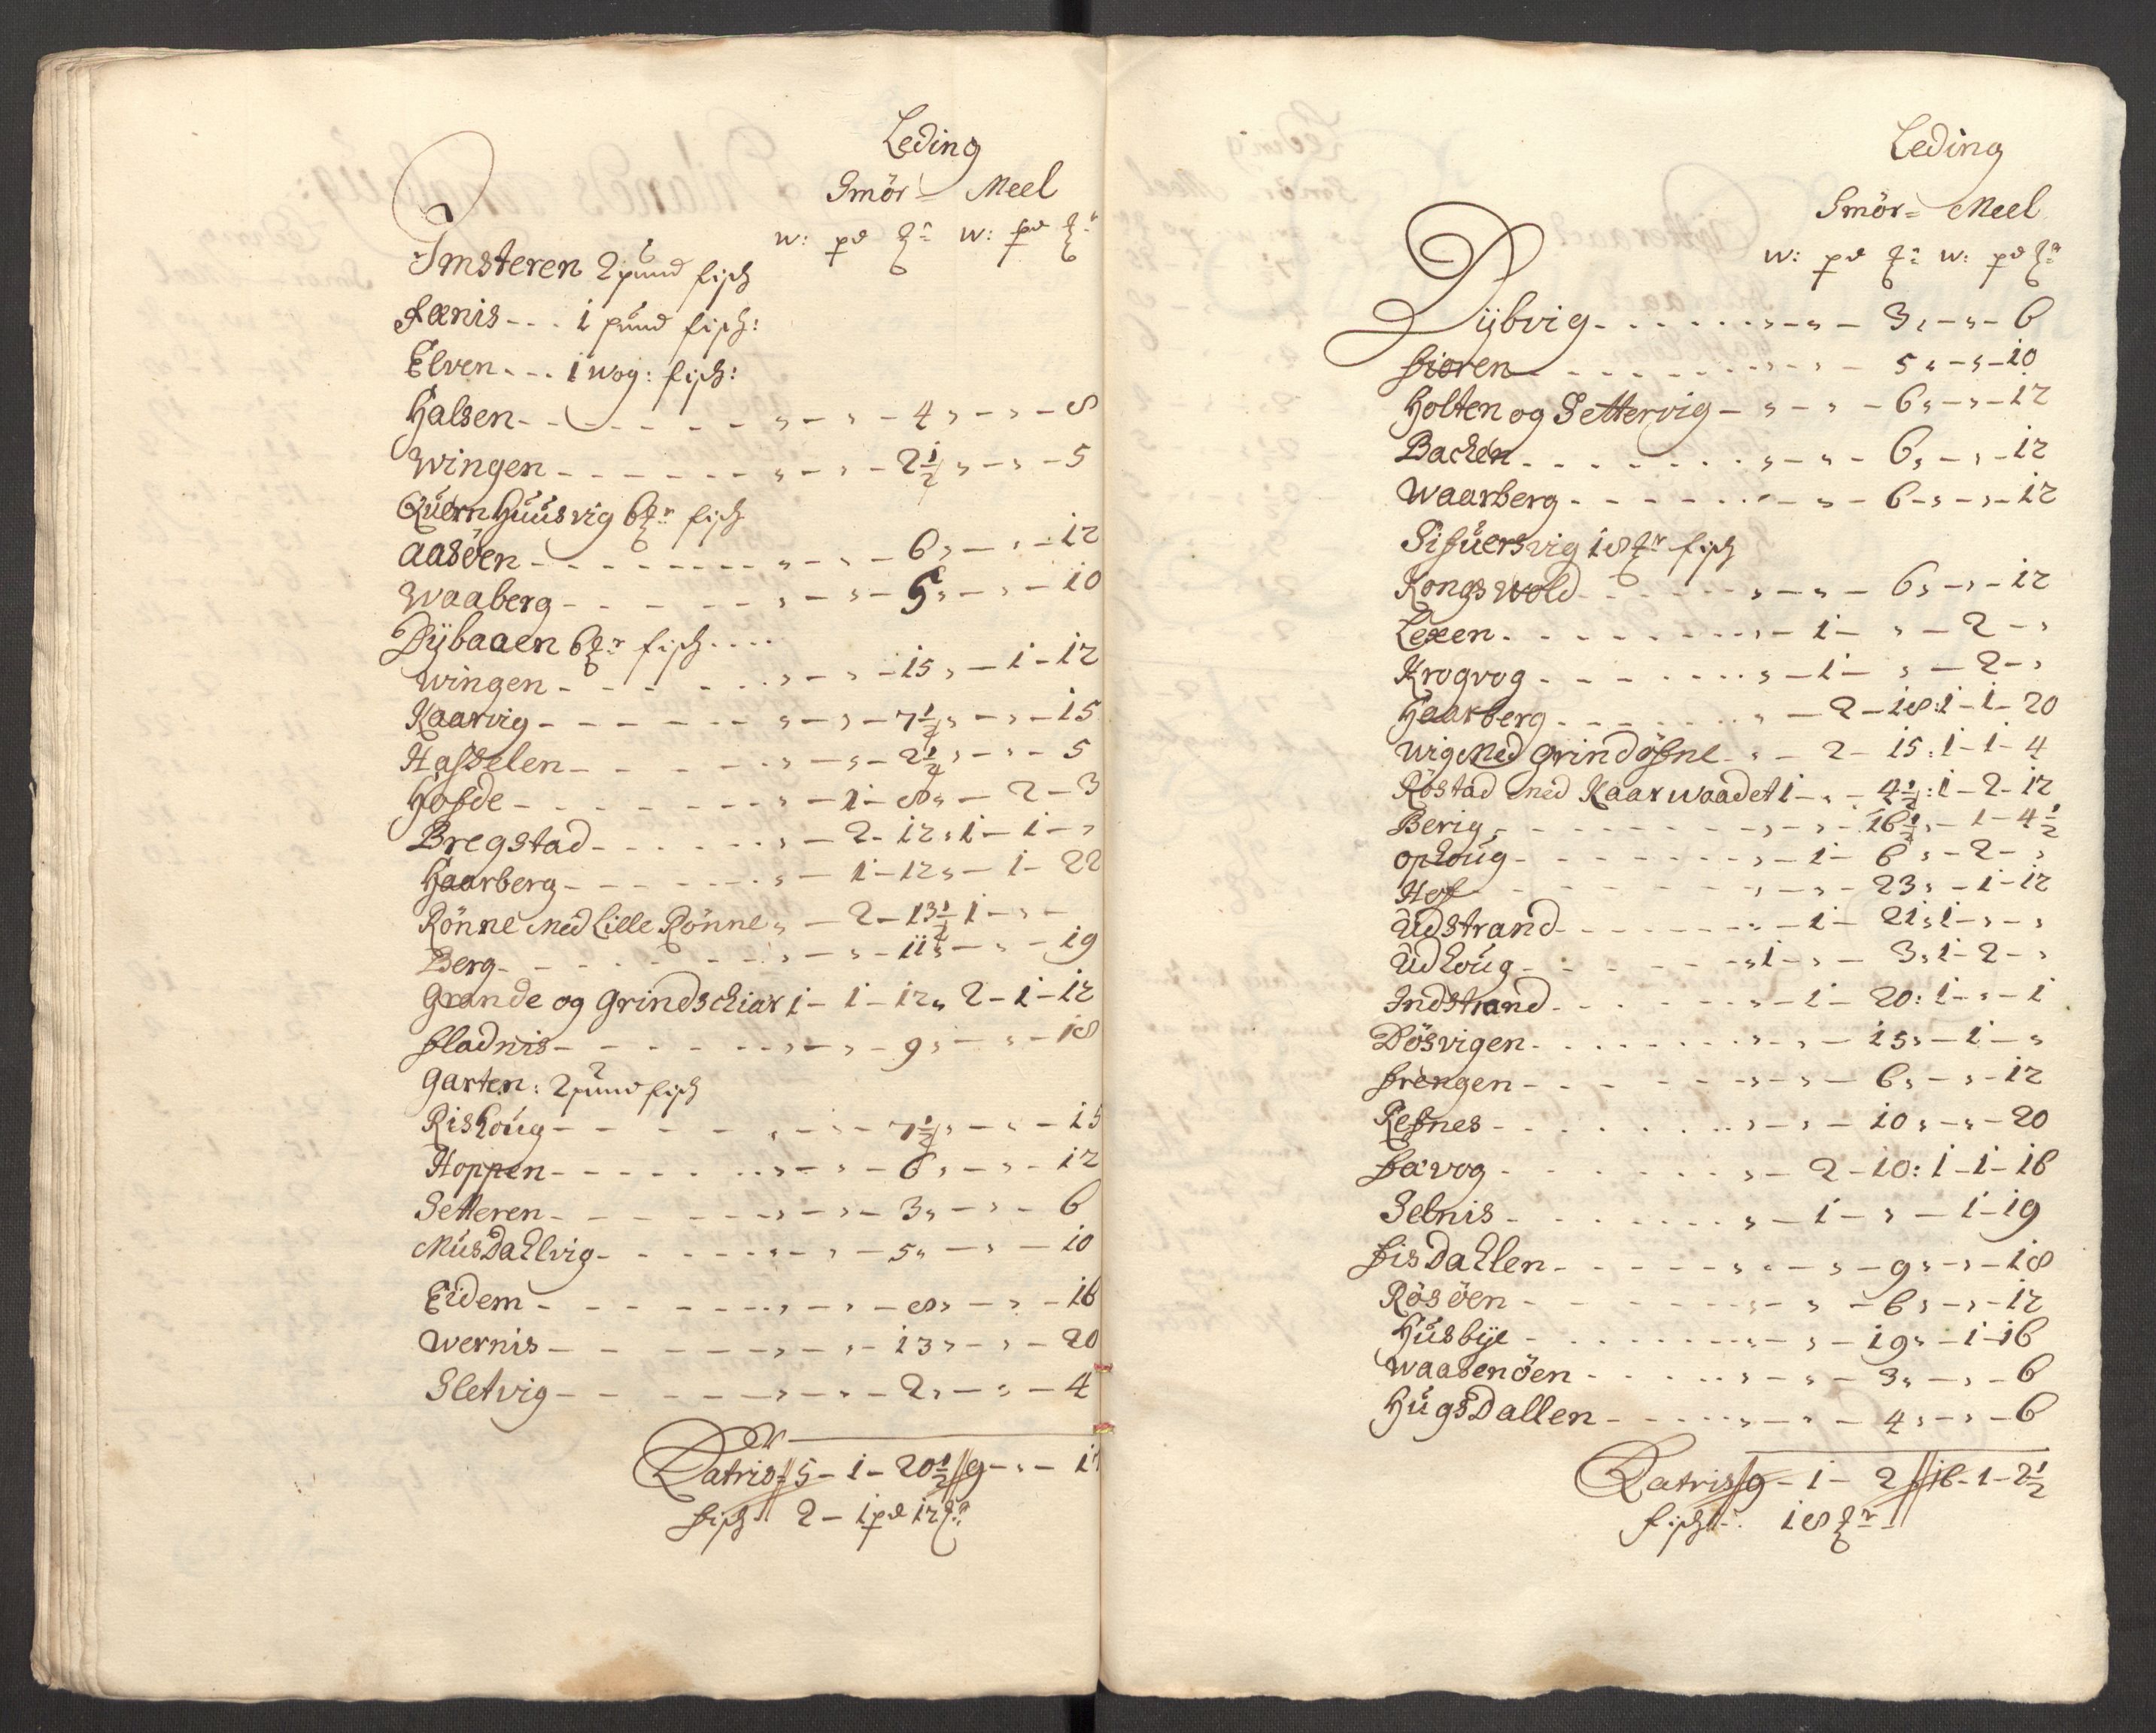 Leding
Smör= Meel
w: pd ℔r w: pd ℔r
Imsteren 2 pund fisch
Fænis - - - 1 pund fisch:
Elven - - - 1 wog: fisch:
Halsen - - - - - - " - " - 4 " - " - 8
Wingen - - - - - - " - " - 2½ " - " - 5
Quern Huusvig 6 ℔r fisch
Aasöen - - - - - - - " - " - 6 " - " - 12
Waaberg - - - - - - " - " - 5 " - " - 10
Dÿbaaen 6 ℔r fisch - - - -
Wingen - - - - - - " - " - 15 " - 1 - 12
Kaarvig - - - - - - " - " - 7½ " - " - 15
Hasselen - - - - - - " - " - 2½ " - " - 5
Hofde - - - - - - - " - 1 - 8 " - 2 - 3
Bregstad - - - - - - " - 2 - 12 : 1 - 1 - "
Haarberg - - - - - - " - 1 - 12 " - 1 - 22
Rönne med Lille Rönne " - 2 - 13½ 1 - " -
Berg - - - - - - - " - " - 11½ " - " - 19
Grande og Grindschiar 1 - 1 - 12 " 2 - 1 - 12
Fladnis - - - - - - " - " - 9 " - " - 18
Garten: 2 pund fisch
Rishoug - - - - - - " - " - 7½ " - " - 15
Hoppen - - - - - - " - " - 6 " - " - 12
Setteren - - - - - - " - " - 3 " - " - 6
Musdahlvig - - - - - - " - " - 5 " - " - 10
Eidem - - - - - - " - " - 8 " - " - 16
Wernis - - - - - - " - " - 13 " - " - 20
Sletvig - - - - - - " - " - 2 " - " - 4
Latris // 5 - 1 - 20½ // 9 - " - 1
Fisch: 2 - 1 pd 12 ℔r
Leding
Smör= Meel
w: pd ℔r w: pd ℔r
Dÿbvig - - - - - - " - " - 3 " - " - 6
Fioren - - - - - - " - " - 5 " - " - 10
Holten og Settervig - " - " - 6 " - " - 12
Bachen - - - - - - " - " - 6 " - " - 12
Waarberg - - - - - - " - " - 6 - " - " - 12
Sifuersvig 18 ℔r fisch
Kongs wold - - - - - " - " - 6 " - " - 12
Lexen - - - - - - - " - 1 - " - 2 - "
Krogvog - - - - - - " - 1 - " - 2 - "
Haarberg - - - - - - " - 2 - 18 : 1 - 1 - 20
Wig med Grindöfne - " - 2 - 15 : 1 - 1 - 4
Röstad med Kaarwaadet 1 - " - 4½ : 1 - 2 - 12
Berig - - - - - - - " - " - 16½ " - 1 - 4½
Ophoug - - - - - - - " - 1 - 6 " - 2 - "
Hof - - - - - - - " - " - 23 " - 1 - 12
Udstrand - - - - - - " - 1 - 21 " 1 - " - "
Udhoug - - - - - - " 1 - " - 3 " 1 - 2 - "
Indstrand - - - - - - " - 1 - 20 : 1 - " - 1
Dösvigen - - - - - - " - " - 15 " - 1 - "
Frengen - - - - - - " - " - 6 " - " - 12
Refnes - - - - - - " - " - 10 " - " - 20
Fævog - - - - - - " - 2 - 10 : 1 - 1 - 16
Selnis - - - - - - " - 1 - " - 1 - 19
Fisdahlen - - - - - " - " - 9 " - " - 18
Rösöen - - - - - - " - " - 6 " - " - 12
Husbÿe - - - - - - " - " - 19 " - 1 - 16
Waasenöen - - - - - " - " - 3 " - " - 6
Hugsdallen - - - - - " - " - 4 " - " - 6
Latris // 9 - 1 - 2 // 16 - 1 - 2½
fisch - : 18 ℔r -